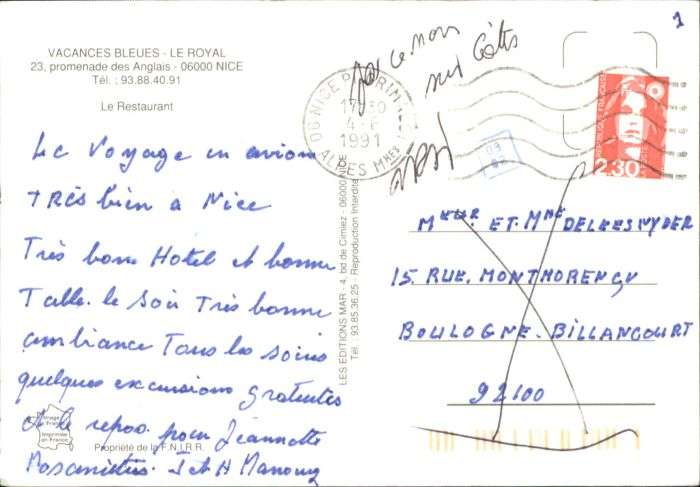 1
VACANCES BLEUES - LE ROYAL
23, promenade des Anglais - 06000 NICE
Tél. : 93.88.40.91
Le Restaurant
06 NICE P
17-30
4-6
1991
ALPES MMES
pas ce nom
aux Côtés
2.30
Le Voyage en avion
TRÈS bien à Nice
Très bon Hotel et bonne
Table. le Soir Très bonne
ambiance Tous les soirs
quelques excursions gratuites
et le repos. pour Jeannette
J et H
LES EDITIONS MAR - 4, bd de Cimiez - 06000 NICE
Tél. : 93.85.36.25 - Reproduction Interdite
Imprimé
en France
Propriété de la F.N.I.R.R.
ET. MME DELEESNYDER
15, RUE. MONTMORENCY
BOULOGNE. BILLANCOURT
92100